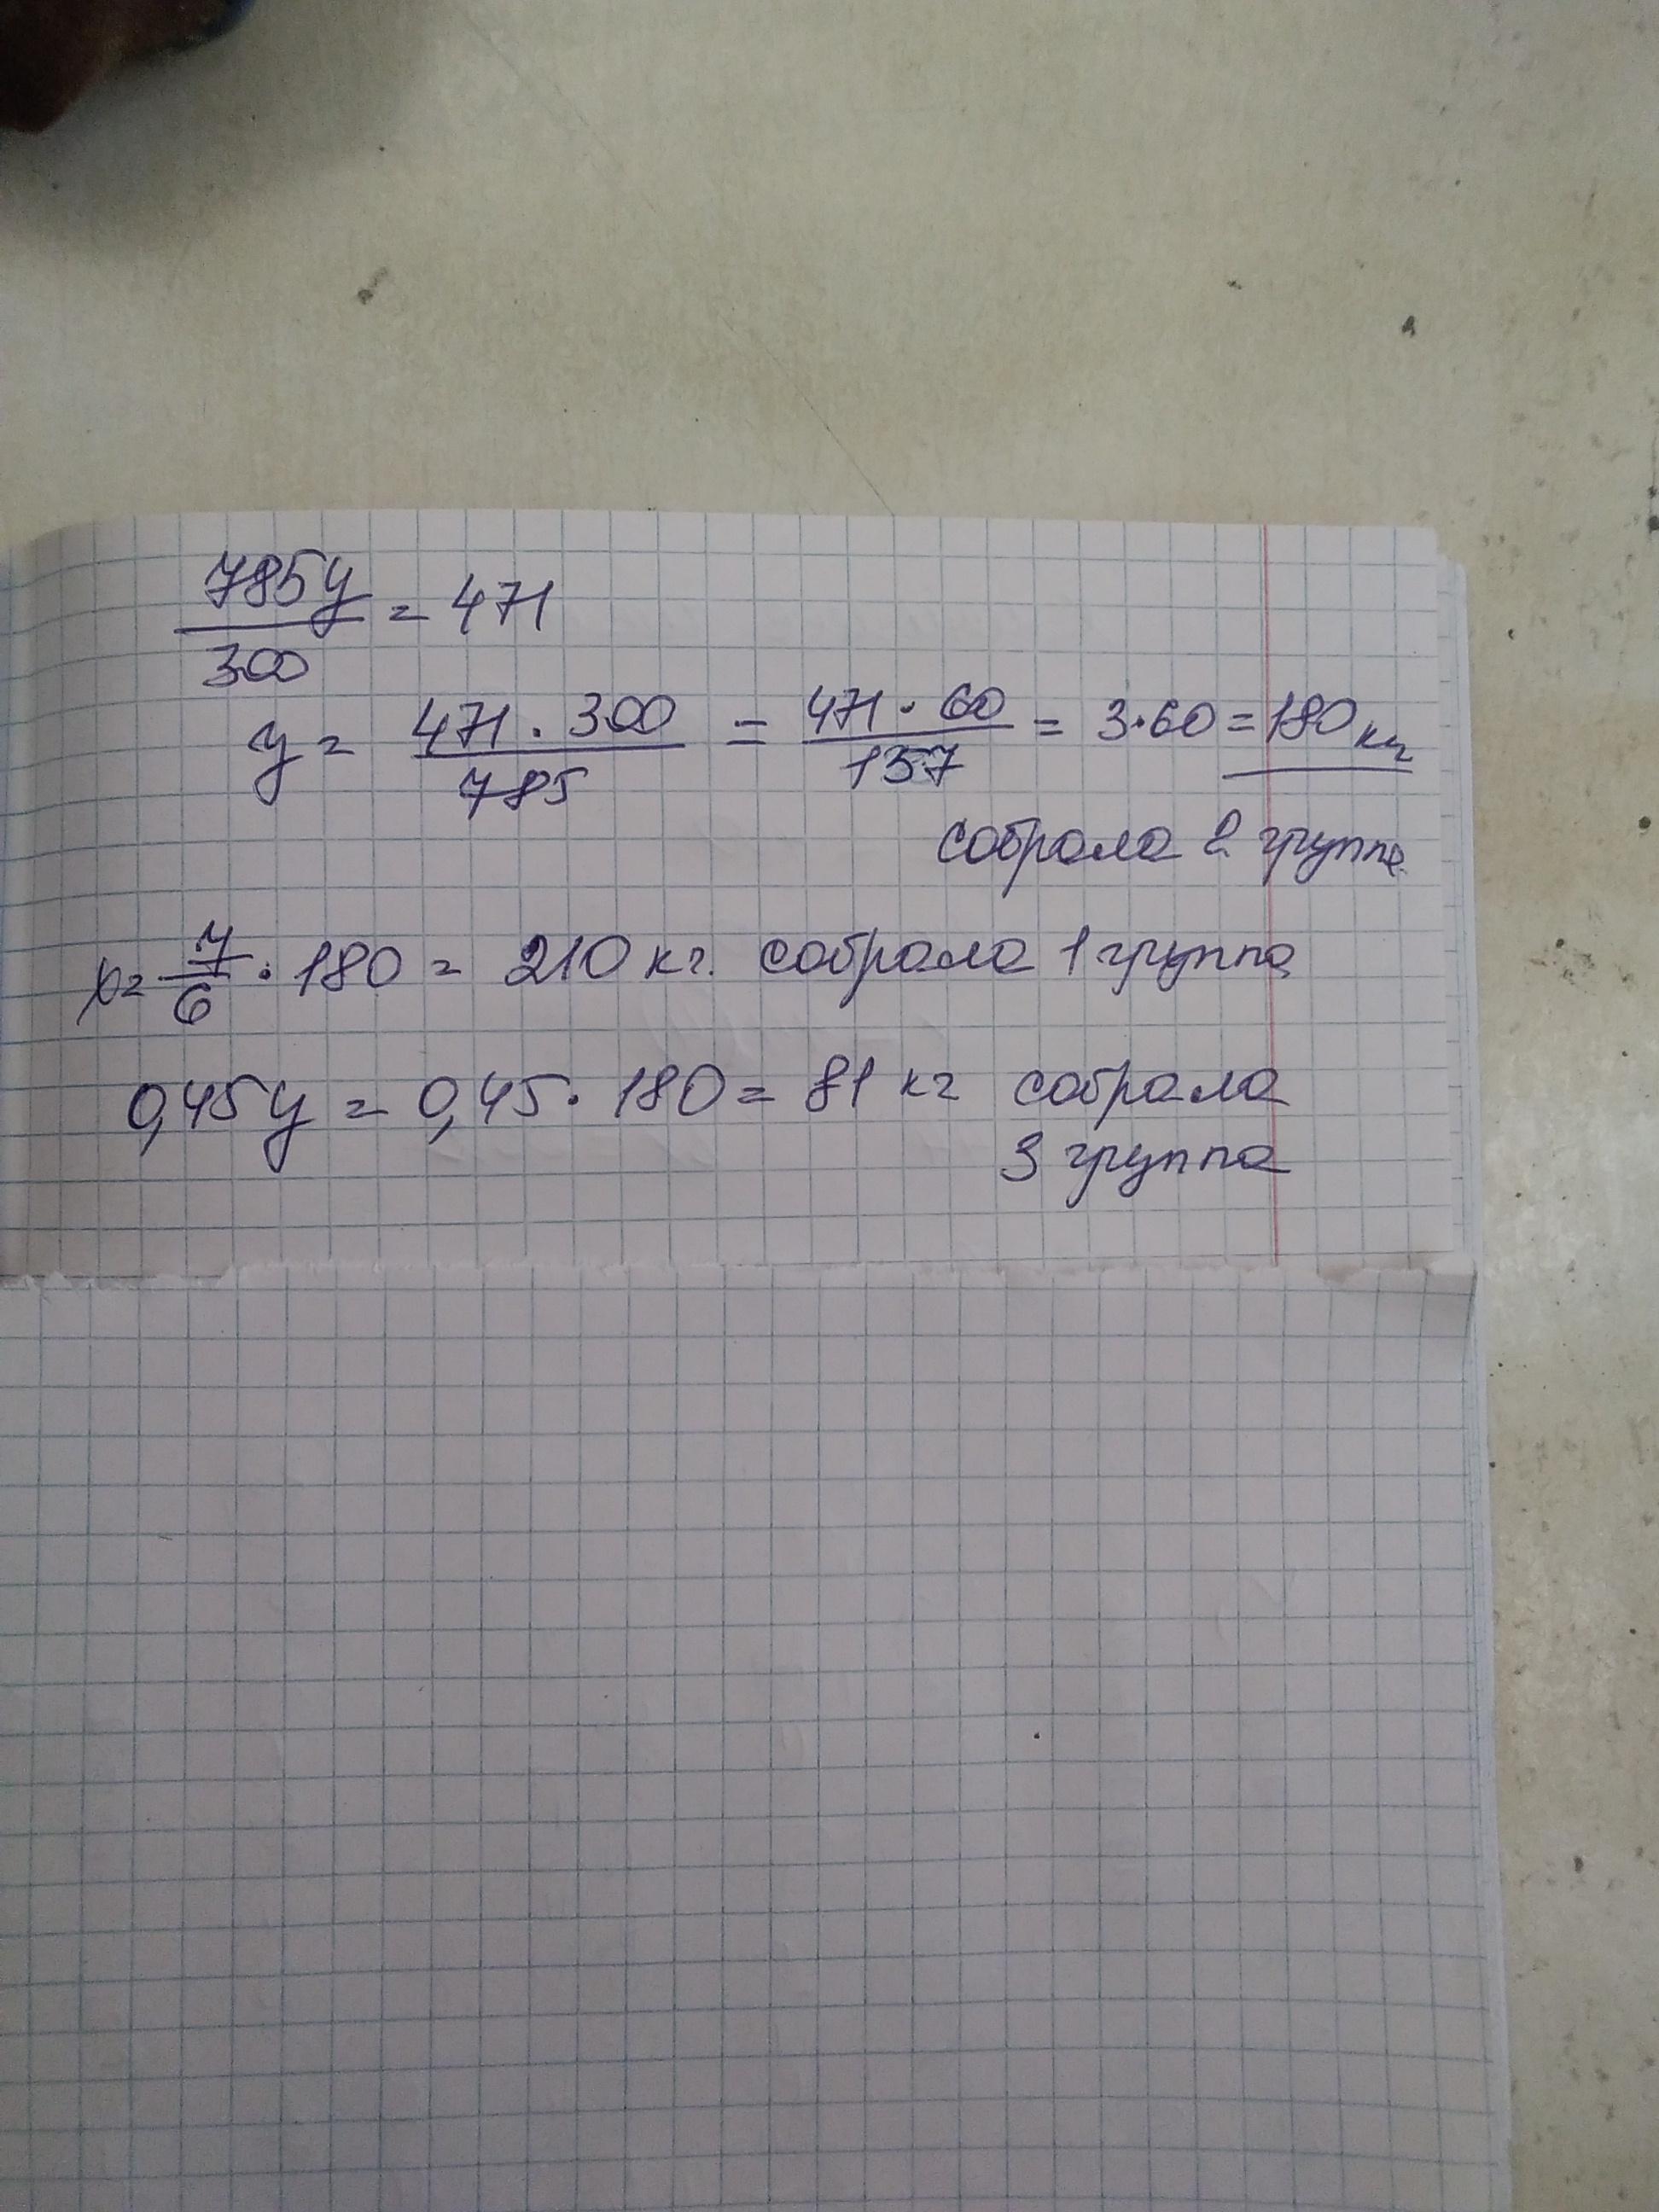 785y/300 = 471
y = 471 · 300/785 = 471 · 60/157 = 3·60 = 180 кг
собрала 2 группа
x = 7/6 · 180 = 210 кг. собрала 1 группа
0,45y = 0,45 · 180 = 81 кг собрала
3 группа